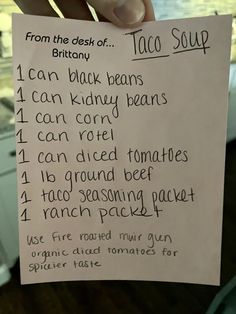 From the desk of...
Brittany
Taco Soup
1 can black beans
1 can kidney beans
1 can corn
1 can rotel
1 can diced tomatoes
1 lb ground beef
1 taco seasoning packet
1 ranch packet
use fire roasted muir glen
organic diced tomatoes for
spicier taste